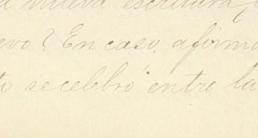 nueva escritura
evo? En caso afirma
to se celebró entre la